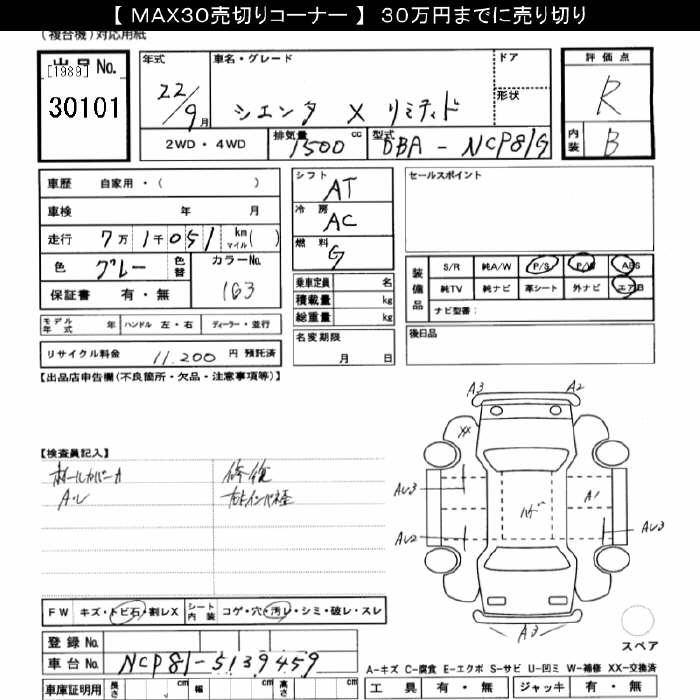 【 MAX30売切りコーナー 】 30万円までに売り切り
(複合機)対応用紙
出品No.
[1989]
30101
年式
22/9月
車名・グレード
シエンタ X リミテッド
ドア
形状
評価点
R
内装
B
2WD・4WD
排気量
1500 cc
型式
DBA-NCP81G
車歴 自家用・( )
車検 年 月
走行 7万1千051 km マイル( )
色 グレー 色替
カラーNo.
1G3
保証書 有・無
シフト
AT
冷房
AC
燃料
G
乗車定員 名
積載量 kg
総重量 kg
セールスポイント
装備品
S/R 純A/W P/S P/W ABS
純TV 純ナビ 革シート 外ナビ エアB
ナビ型番:
モデル年式 年 ハンドル 左・右 ディーラー・並行
名変期限
月 日
後日品
リサイクル料金 11,200 円 預託済
【出品店申告欄(不良箇所・欠品・注意事項等)】
A3 A2
XX
【検査員記入】
ホールカバーカ 修復
AU3
A1
AU2
AU3
A3
FW キズ・トビ石・割レX シート内装 コゲ・穴・汚レ・シミ・破レ・スレ
登録No.
車台No. NCP81-5139459
スペア
A-キズ C-腐食 E-エクボ S-サビ U-凹ミ W-補修 XX-交換済
車庫証明用 長さ cm 幅 cm 高さ cm
工具 有・無 ジャッキ 有・無